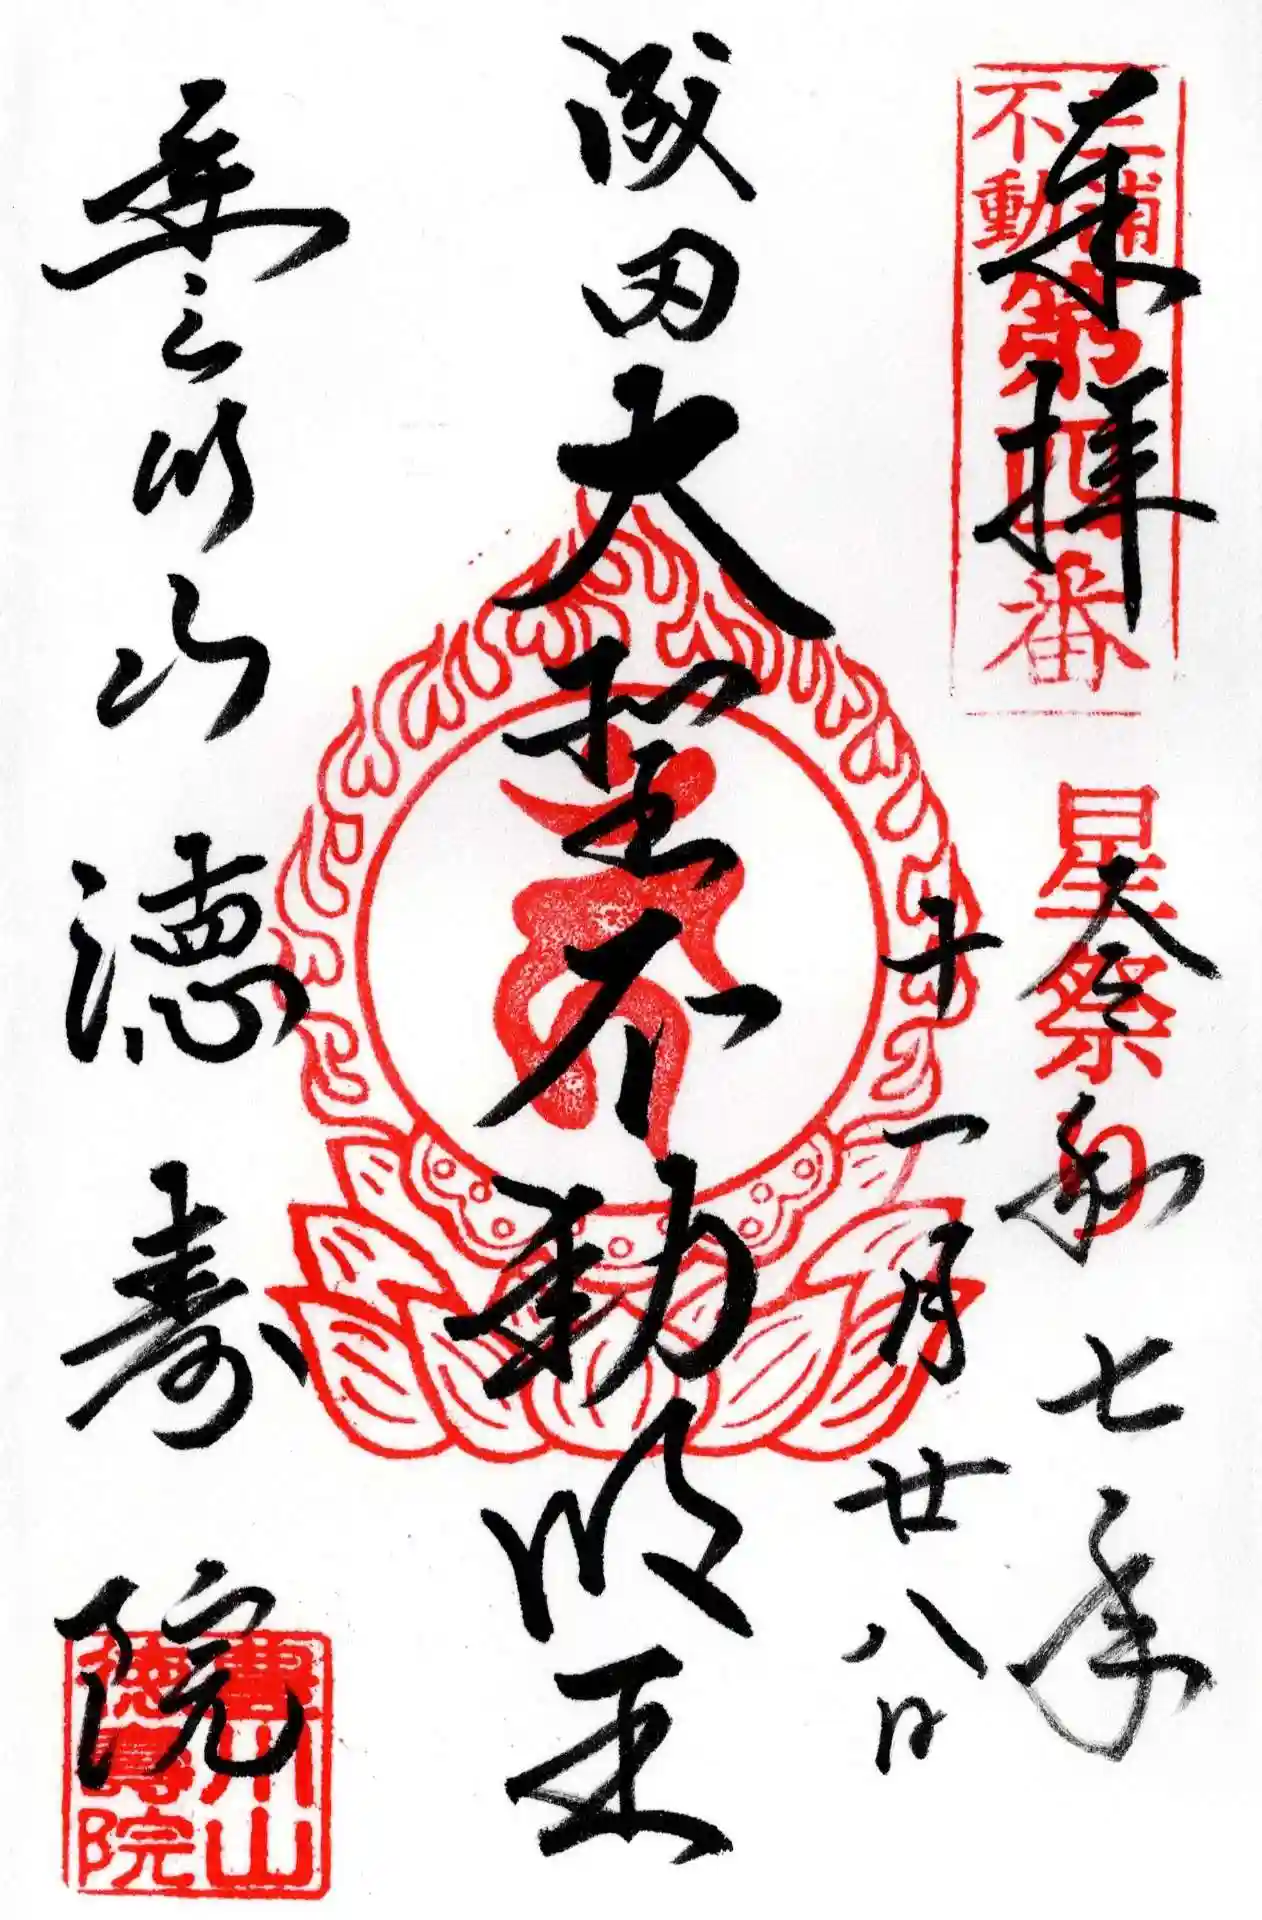 三浦
不動
第四番
奉拝
星祭り
令和七年
十一月廿八日
成田大聖不動明王
豊川山徳寿院
豊川山
徳壽院